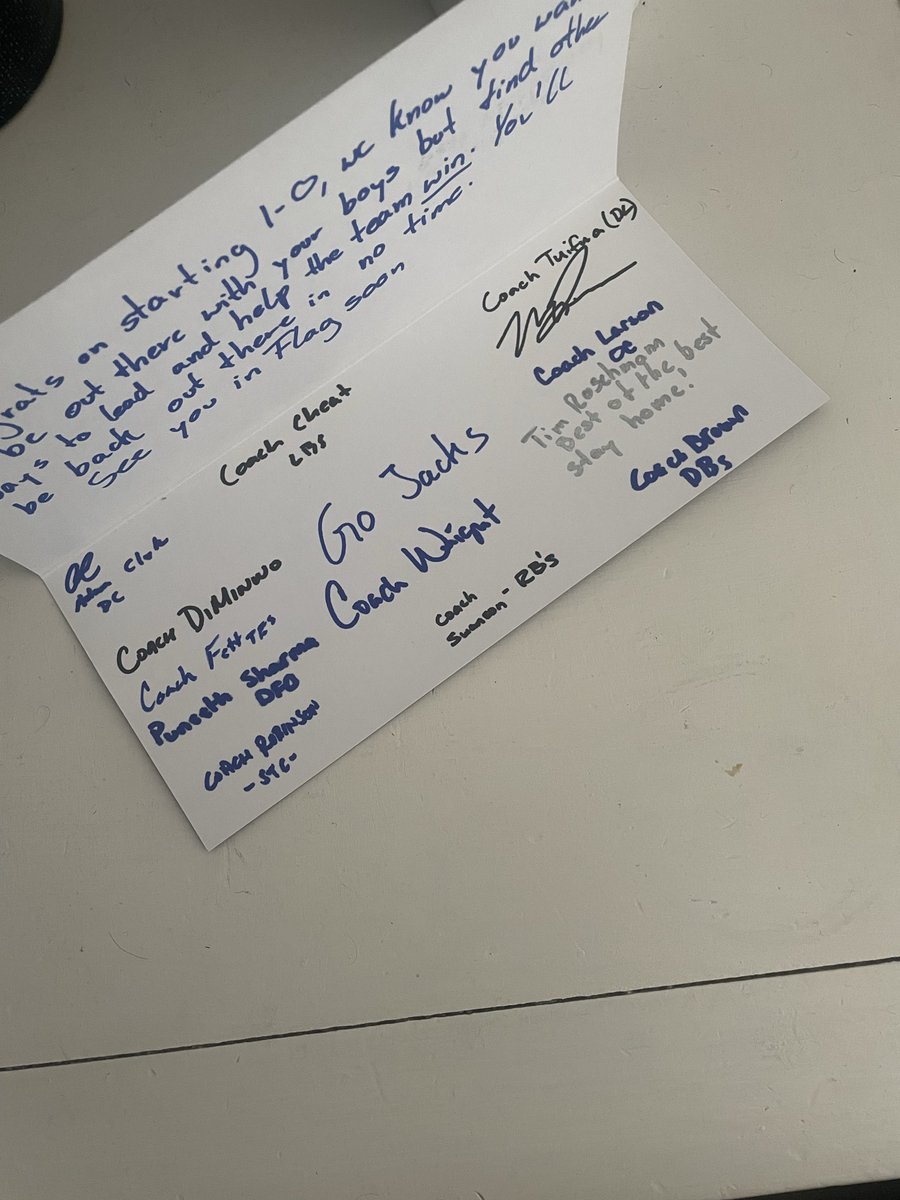 on starting 1-0, we know you
be out there with your boys but find other
to lead and help the team win. You'll
be back out there in no time.
see you in Flag soon
Coach Cheat
LBs
Coach Tuifua (DL)
Coach Larson
OC
Tim Rosehmann
Best of the best
stay home!
Coach Brown
DBs
Go Jacks
Coach Wright
DC
Coach DiMinno
Coach
Puneeth Sharma
DFO
Coach Robinson
- STC -
Coach
Swanson - RB's